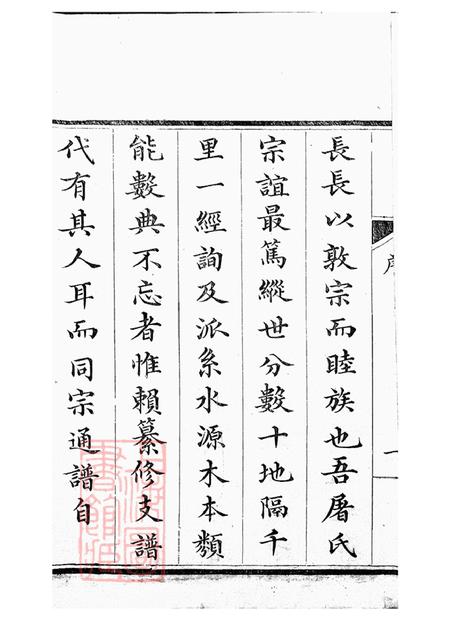 長長以敦宗而睦族也吾屠氏
宗誼最篤縱世分數十地隔千
里一經詢及派系水源木本類
能數典不忘者惟賴纂修支譜
代有其人耳而同宗通譜自